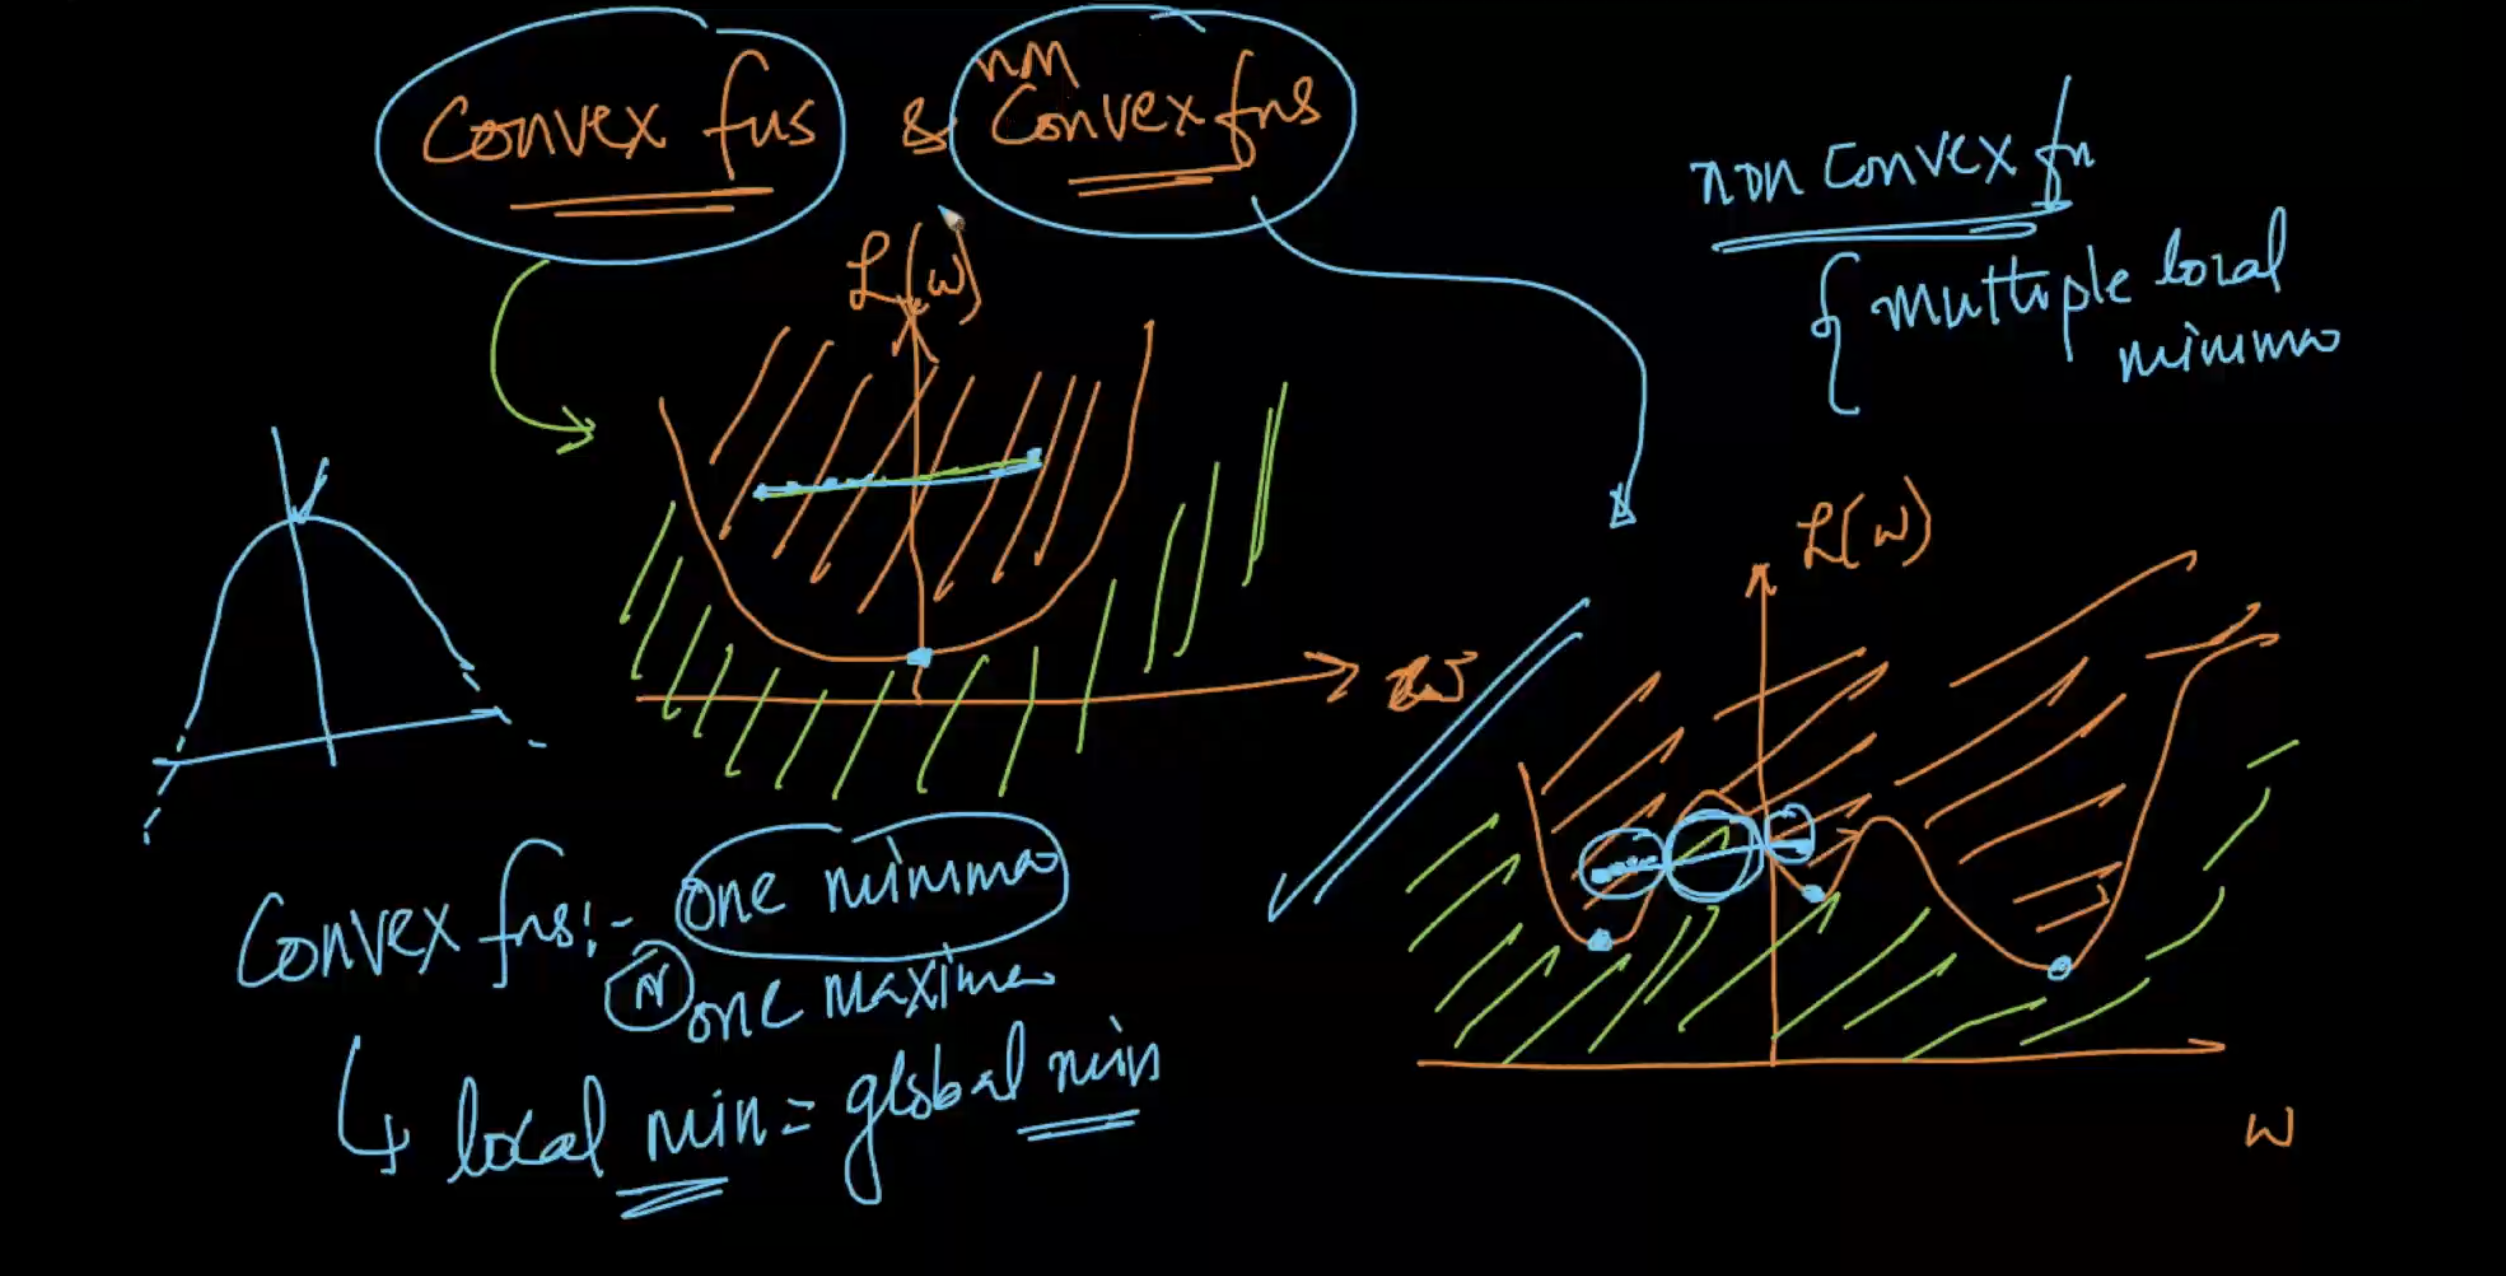 Convex fns & non Convex fns
non convex fn
{ multiple local
minima
L(w)
w
L(w)
w
Convex fns:- one minima
(or) one maxima
↳ local min = global min